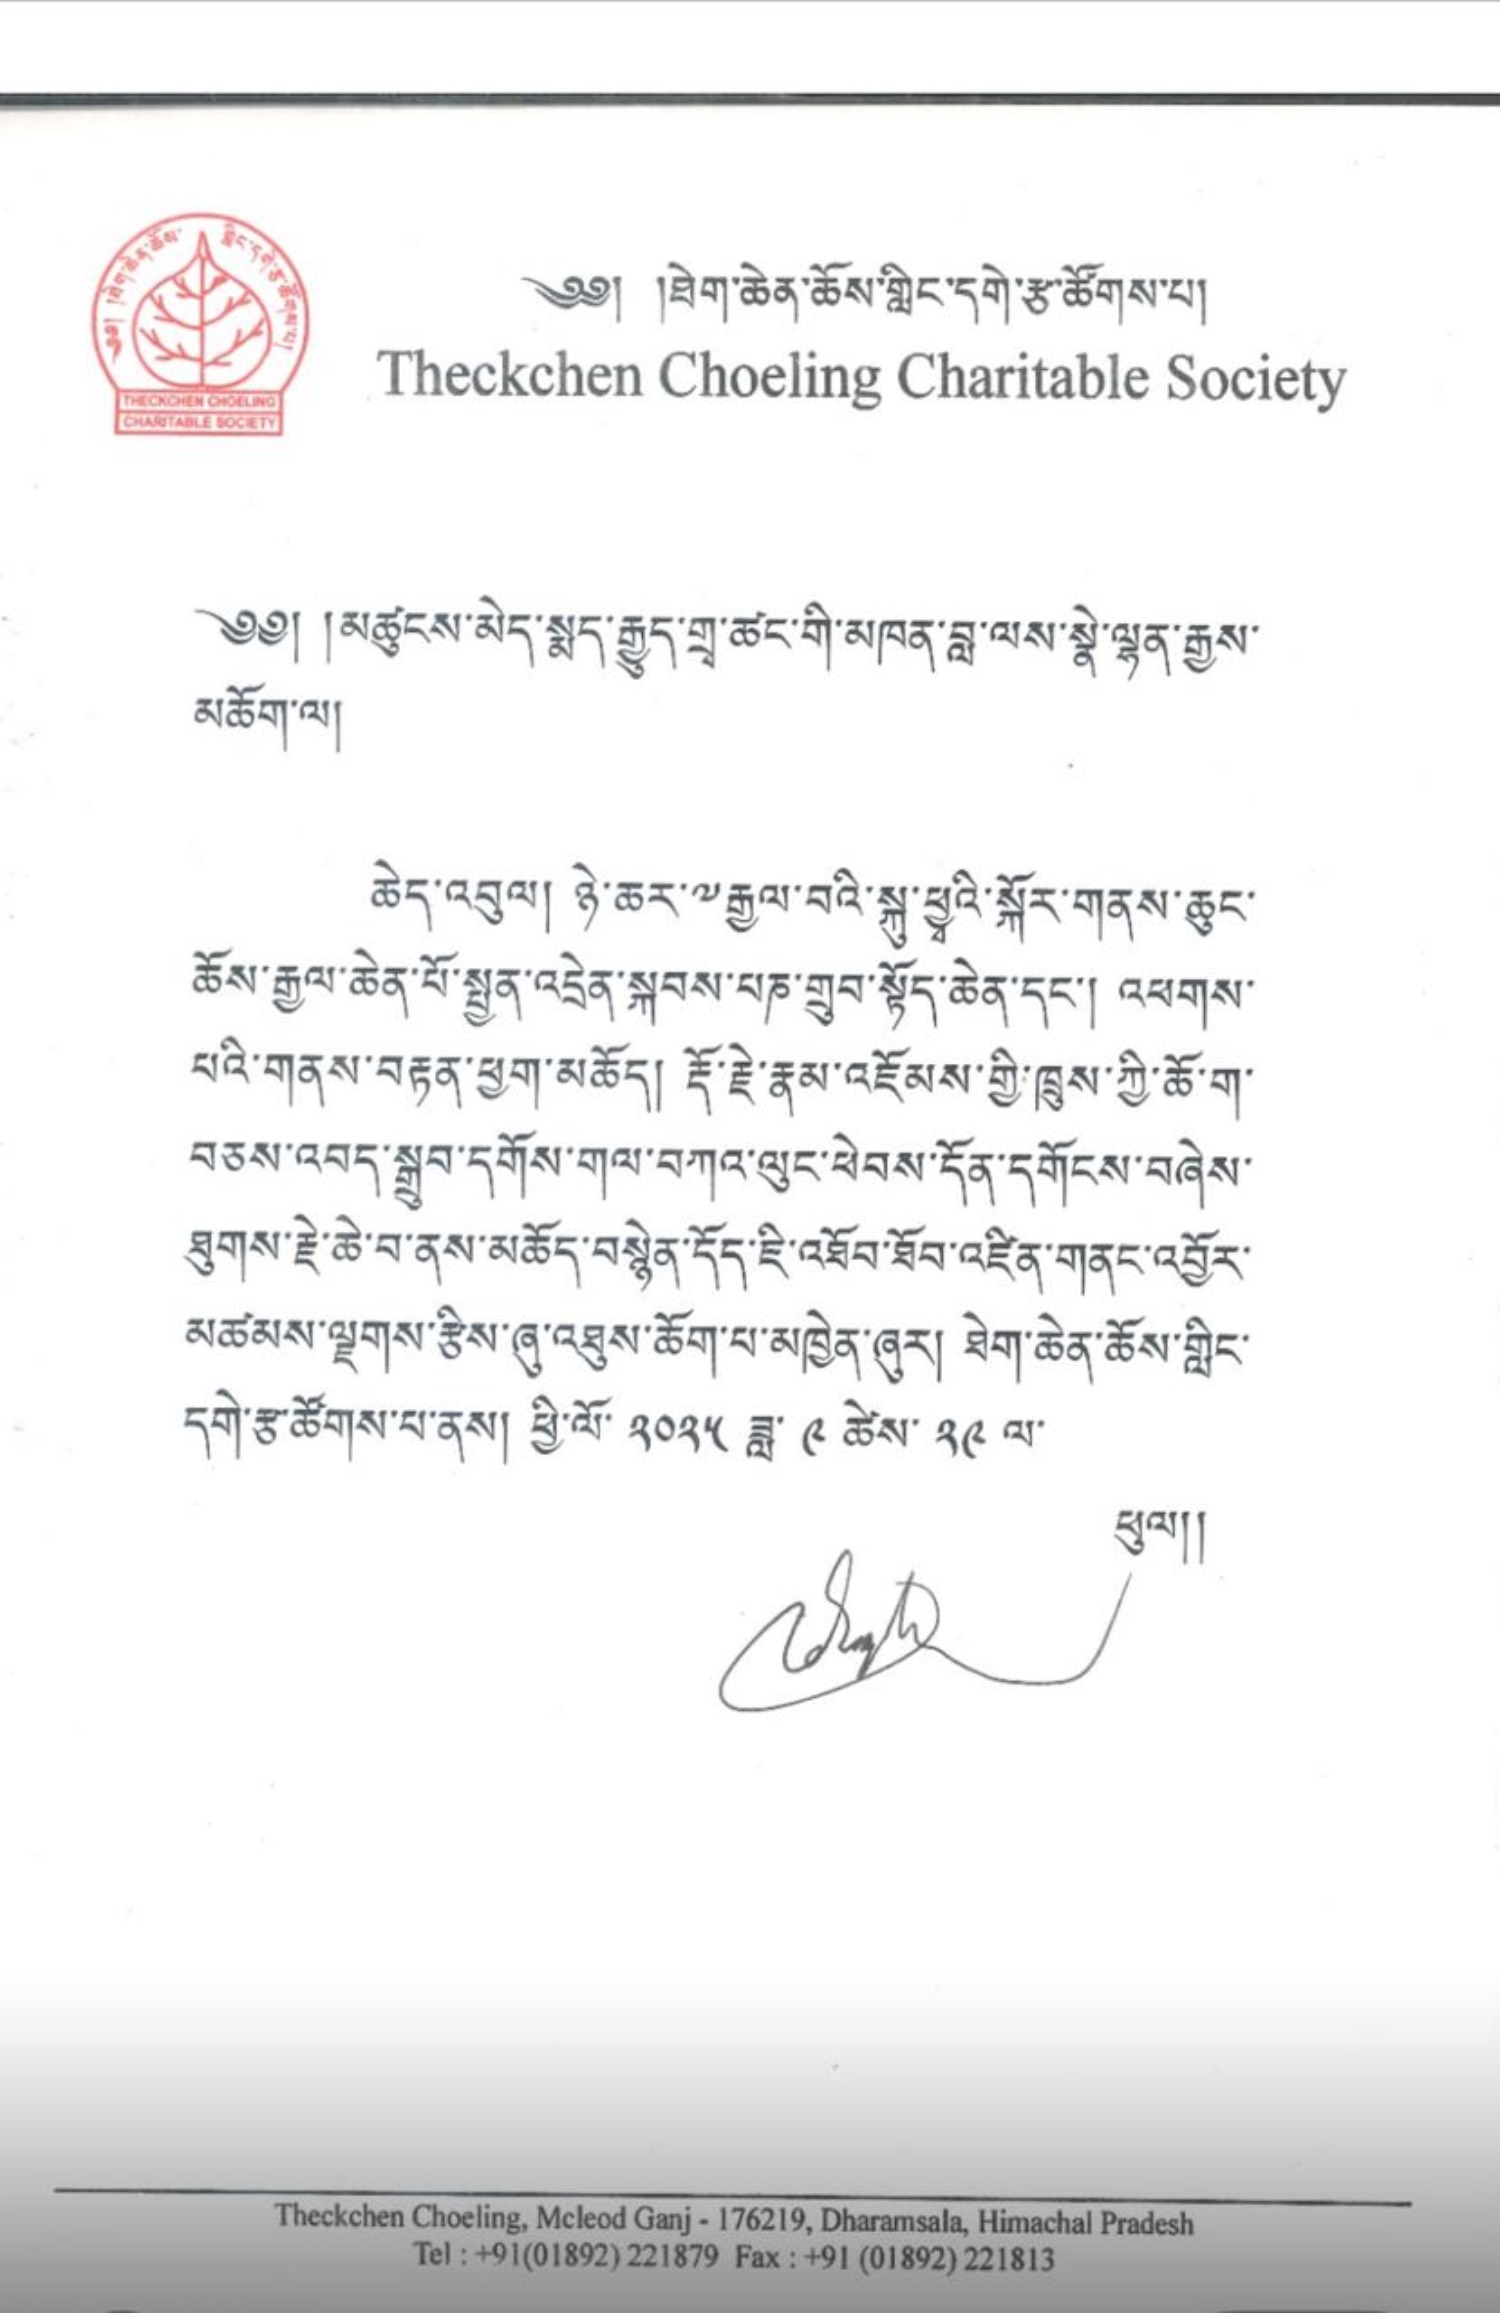 ༄༅། །ཐེག་ཆེན་ཆོས་གླིང་དགེ་རྩ་ཚོགས་པ།
Theckchen Choeling Charitable Society
༄༅། །ཐེག་ཆེན་ཆོས་གླིང་དགེ་རྩ་ཚོགས་པ།
THECKCHEN CHOELING
CHARITABLE SOCIETY
༄༅། །མཚུངས་མེད་སྨད་རྒྱུད་གྲྭ་ཚང་གི་མཁན་བླ་ལས་སྣེ་ལྷན་རྒྱས་
མཆོག་ལ།
ཆེད་འབུལ། ཉེ་ཆར་༧རྒྱལ་བའི་སྐུ་ཕྱྭའི་སྐོར་གནས་ཆུང་
ཆོས་རྒྱལ་ཆེན་པོ་སྤྱན་འདྲེན་སྐབས་པཎ་གྲུབ་སྟོད་ཆེན་དང་། འཕགས་
པའི་གནས་བརྟན་ཕྱག་མཆོད། རྡོ་རྗེ་རྣམ་འཇོམས་ཀྱི་ཁྲུས་ཀྱི་ཆོ་ག་
བཅས་འབད་སྒྲུབ་དགོས་གལ་བཀའ་ལུང་ཕེབས་དོན་དགོངས་བཞེས་
ཐུགས་རྗེ་ཆེ་བ་ནས་མཆོད་བསྙེན་དོད་ཇི་འཐོབ་ཐོབ་འཛིན་གནང་འབྱོར་
མཚམས་ལྗགས་རྩིས་ཞུ་འཐུས་ཆོག་པ་མཁྱེན་ཞུར། ཐེག་ཆེན་ཆོས་གླིང་
དགེ་རྩ་ཚོགས་པ་ནས། ཕྱི་ལོ་ ༢༠༢༥ ཟླ་ ༩ ཚེས་ ༢༩ ལ་
ཕུལ།།
Theckchen Choeling, Mcleod Ganj - 176219, Dharamsala, Himachal Pradesh
Tel : +91(01892) 221879 Fax : +91 (01892) 221813